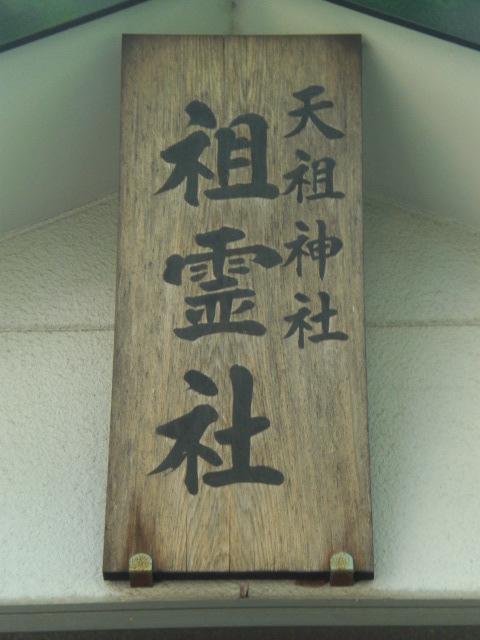 天祖神社
祖霊社